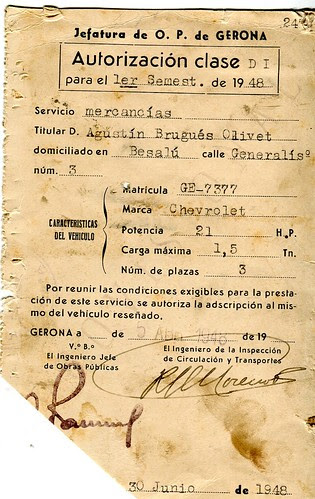 24
Jefatura de O. P. de GERONA
Autorización clase D I
para el 1er Semest. de 1948
Servicio mercancías
Titular D. Agustín Brugués Olivet
domiciliado en Besalú calle Generalísº
núm. 3
CARACTERISTICAS DEL VEHICULO
Matrícula GE-7377
Marca Chevrolet
Potencia 21 H.P.
Carga máxima 1,5 Tn.
Núm. de plazas 3
Por reunir las condiciones exigibles para la presta-
ción de este servicio se autoriza la adscripción al mis-
mo del vehículo reseñado.
GERONA a de 1948 de 19
V.º B.º
El Ingeniero Jefe
de Obras Públicas
El Ingeniero de la Inspección
de Circulación y Transportes
30 Junio de 1948